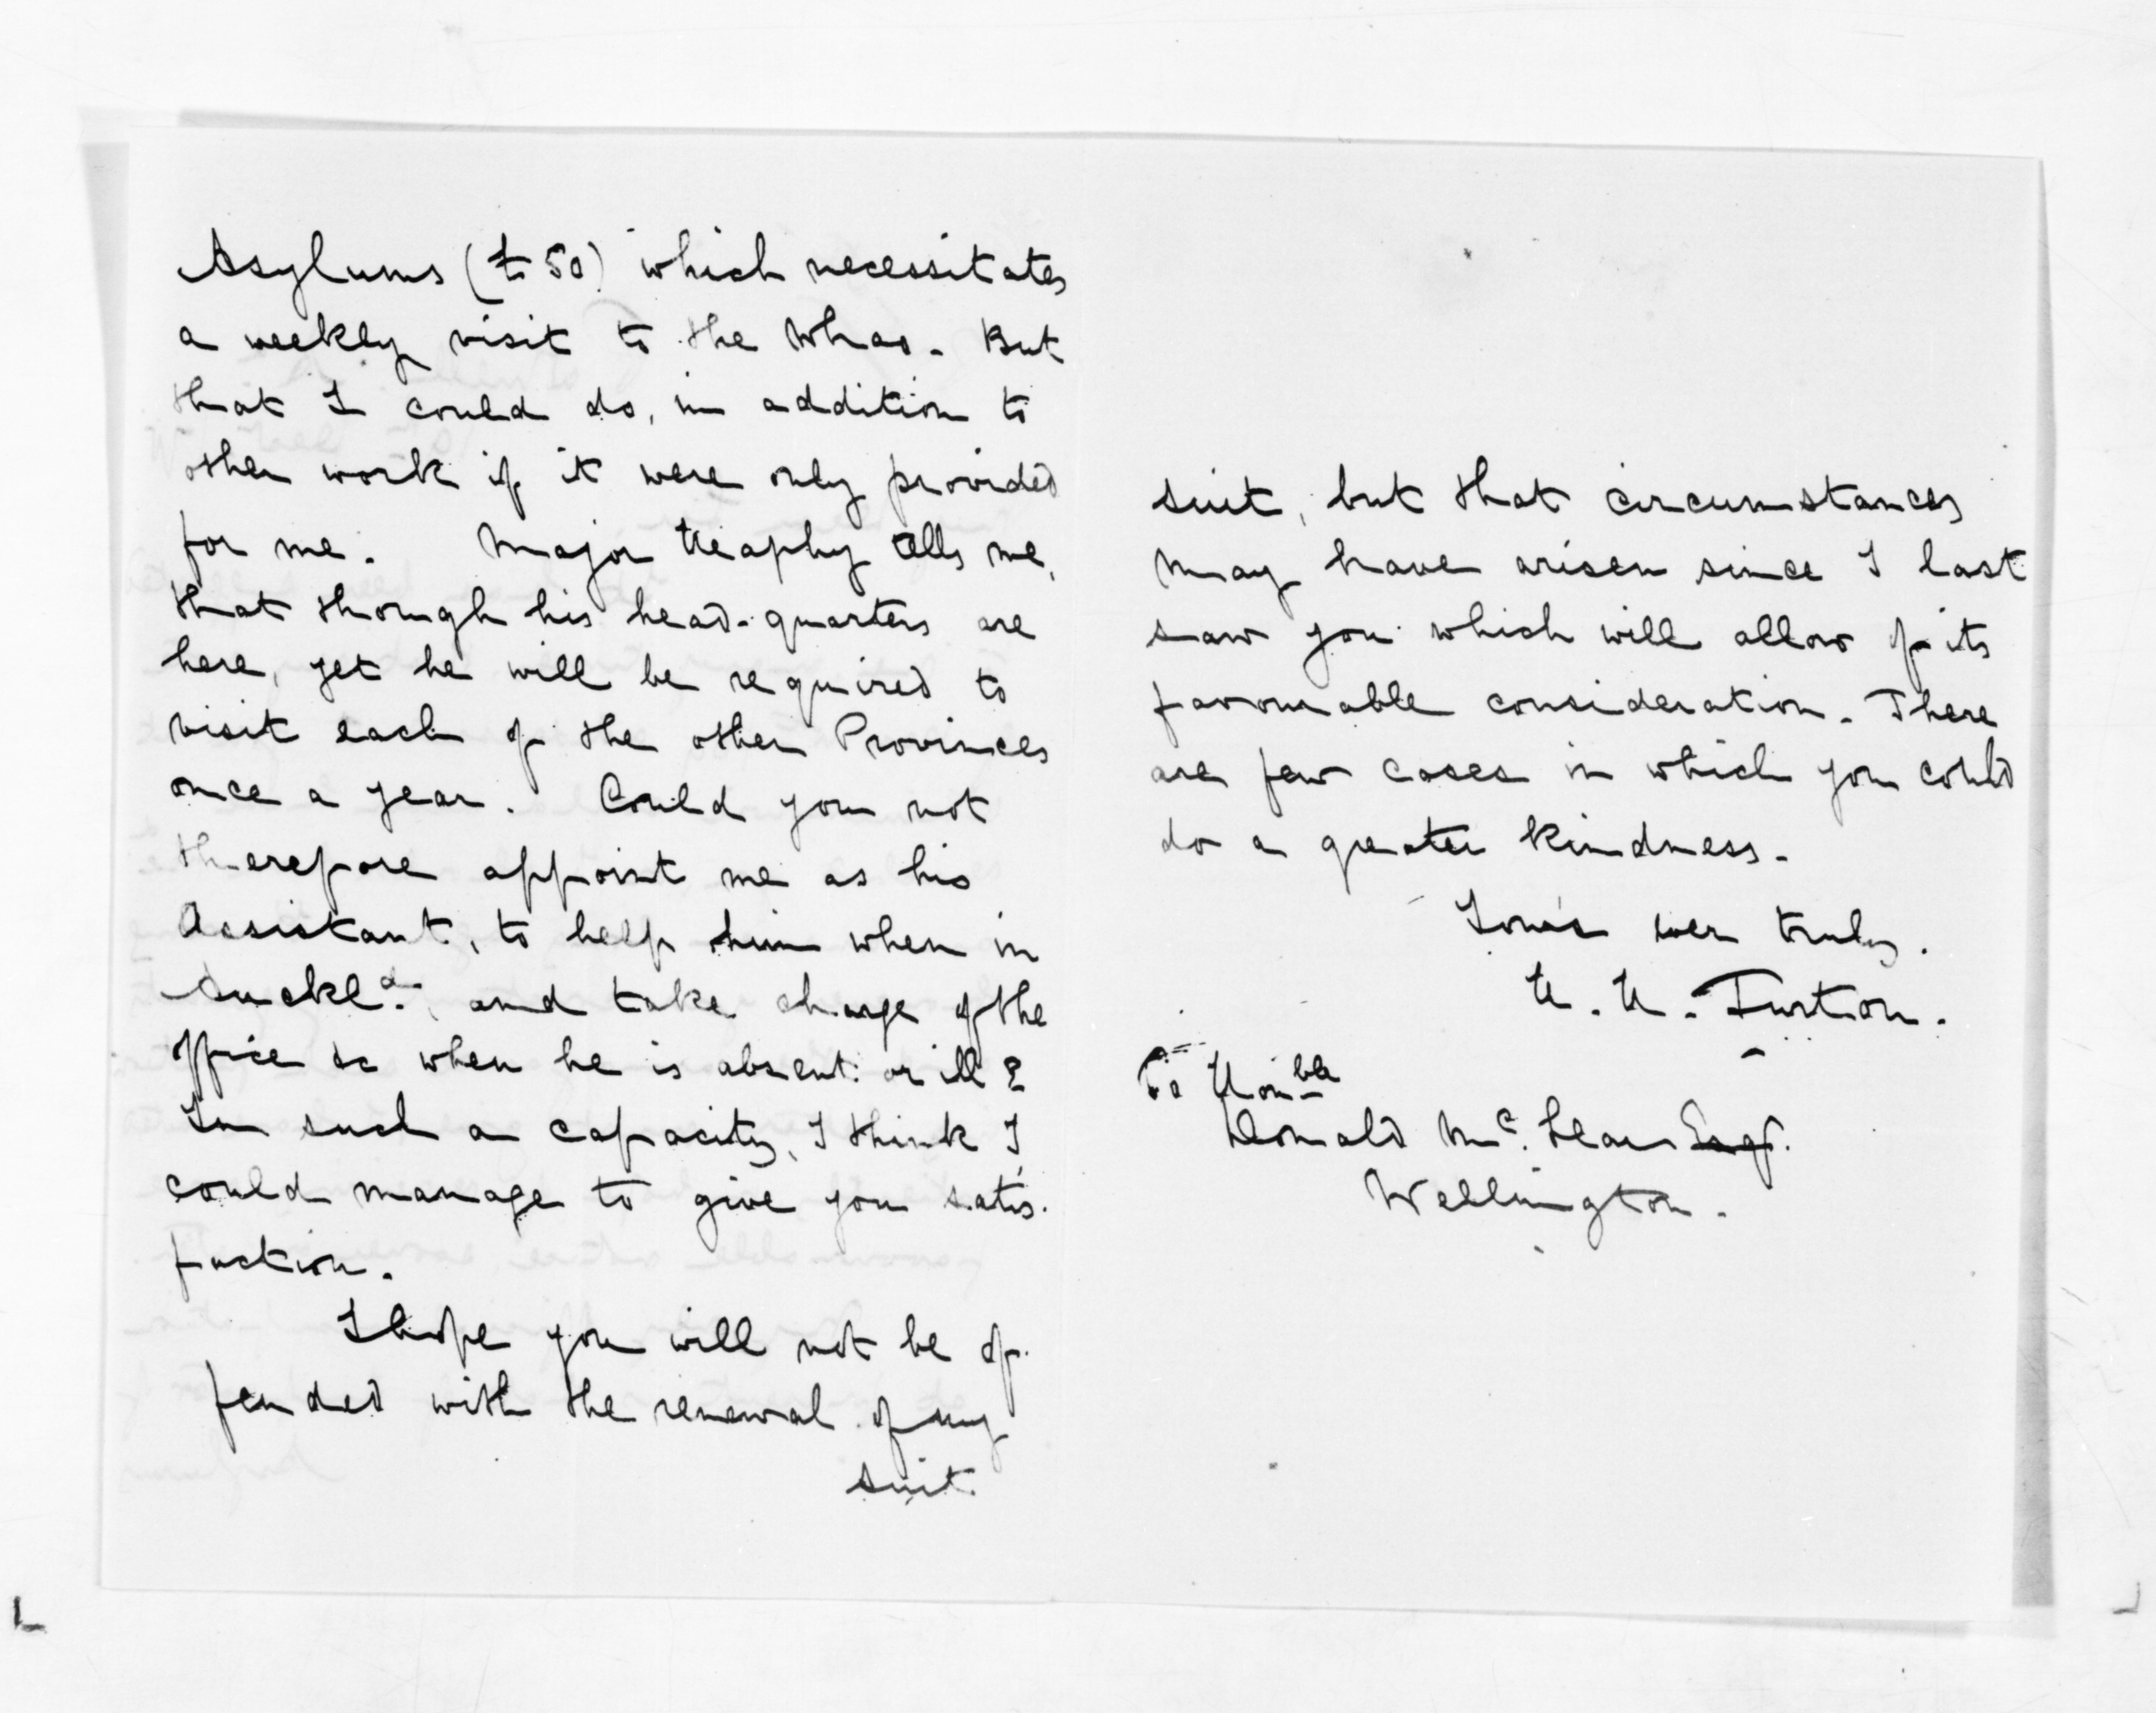 Asylums (£50) which necessitates
a weekly visit to the Whao. But
that I could do, in addition to
other work if it were only provided
for me. Major Heaphy tells me,
that though his head-quarters are
here, yet he will be required to
visit each of the other Provinces
once a year. Could you not
therefore appoint me as his
Assistant, to help him when in
Auckld., and take charge of the
office &c when he is absent or ill?
In such a capacity, I think I
could manage to give you satis-
faction.
I hope you will not be of-
fended with the renewal of my
suit
suit, but that circumstances
may have arisen since I last
saw you which will allow of its
favourable consideration. There
are few cases in which you could
do a greater kindness.
Yours ever truly.
H. H. Turton.
To Honble
Donald McLean Esqr.
Wellington.